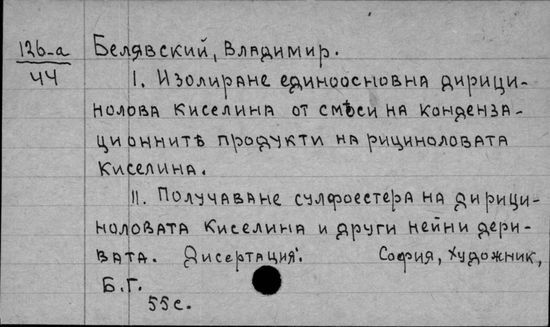 12б-а
44
Белявский, Владимир.
I. Изолиране едноосновна дирици-
нолова киселина от смѣси на конденза-
ционнитѣ продукти на рициноловата
киселина.
II. Получаване сулфоестера на дирици-
ноловата киселина и други нейни дери-
вата. Дисертация. София, Художник,
Б.Г.
55с.